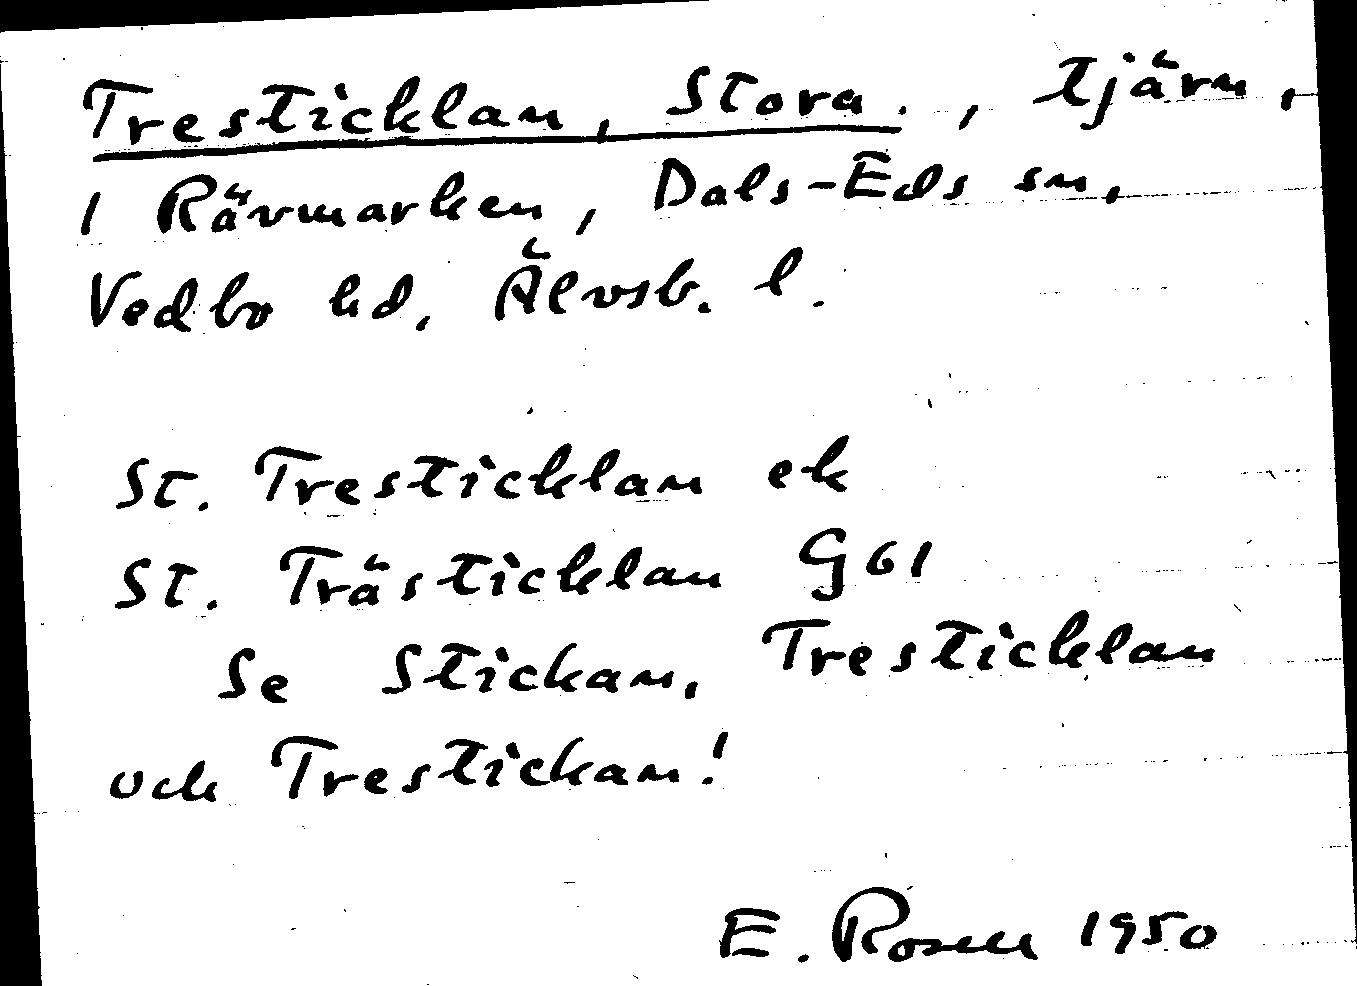 Tresticklan, Stora., tjärn,
i Rävmarken, Dals-Eds sn,
Vedbo hd, Älvsb. l.
St. Tresticklan ek
St. Trästicklan G61
Se Stickan, Tresticklan
och Trestickan!
E. Rosell 1950